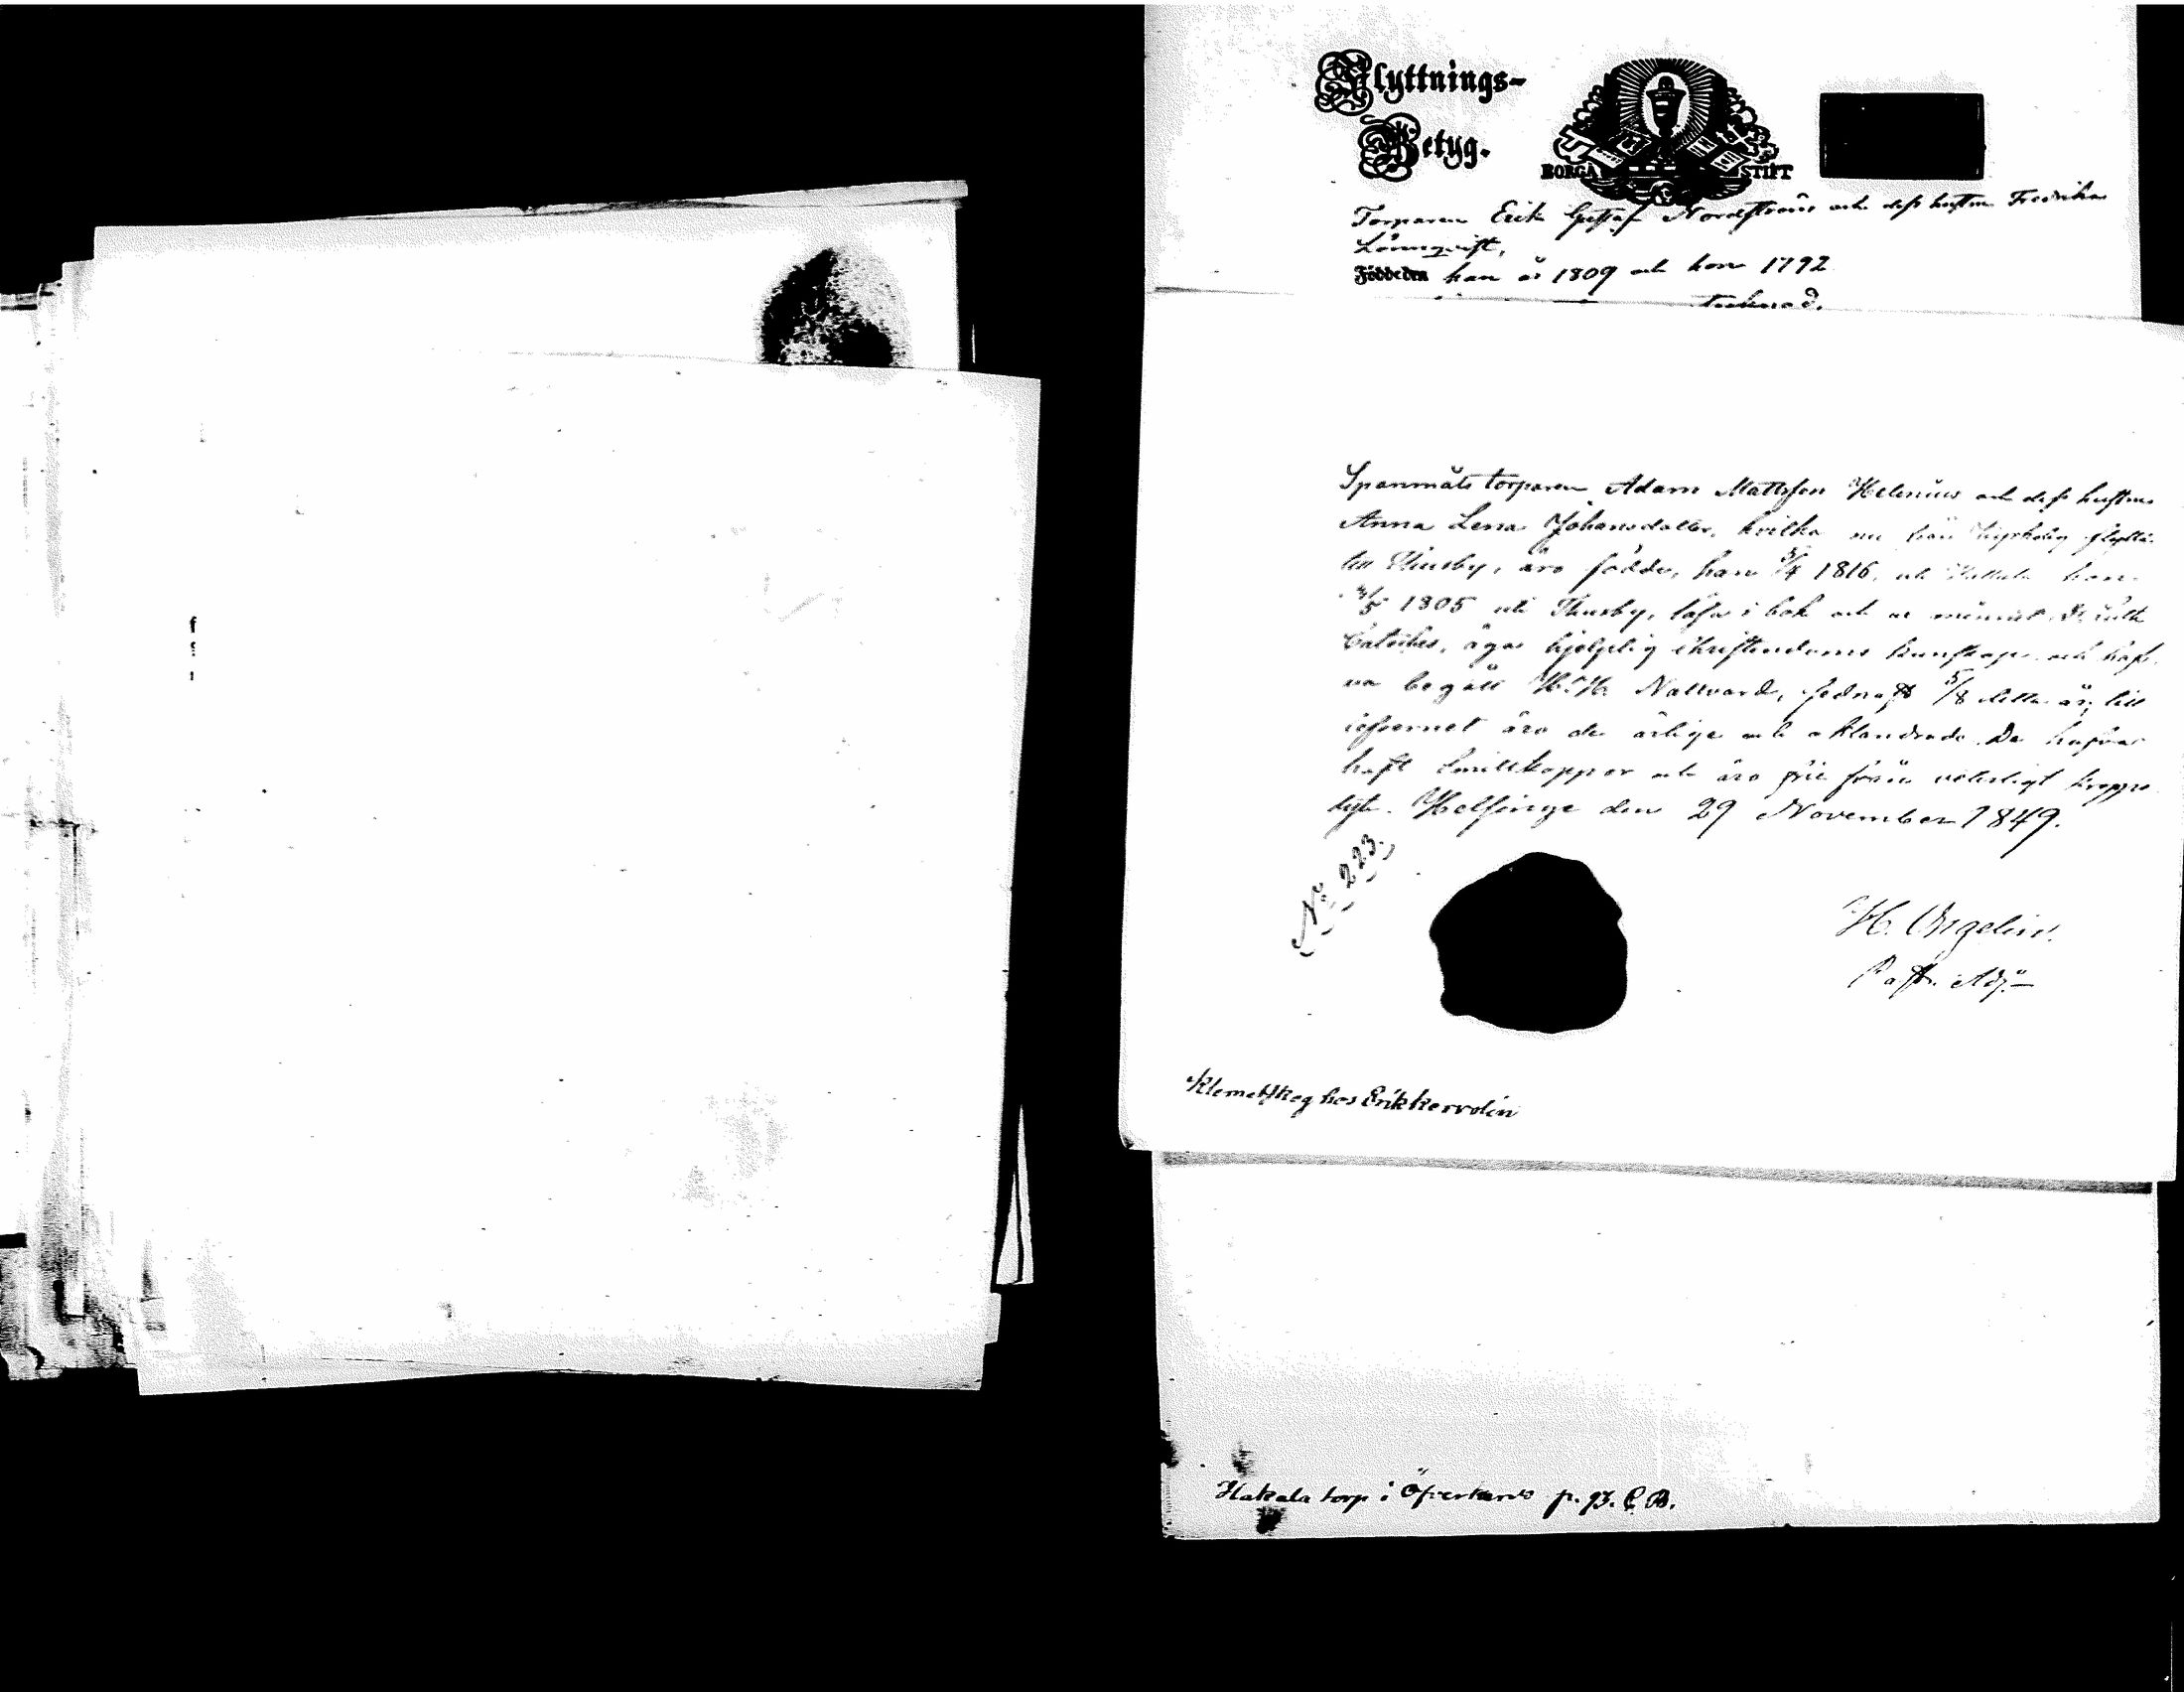 Flyttnings-
Betyg.
BORGÅ STIFT
Torparen Erik Gustaf Nordström och dess hustru Fredrika
Lönnqvist,
Född den han år 1809 och hon 1792
Spanmåls torparen Adam Mattsson Helenius och dess hustru
Anna Lena Johansdotter, hvilka nu från flytta
till Thusby, äro födde, han 1816, och hon
1805 uti Thusby, läsa i bok och
äga hjelplig christendoms kunskap och haf-
va begått H. H. Nattvard, sednast 5/8 detta år, till
lefvernet äro de ärlige och oklandrade. De hafva
haft Smittkoppor och äro från veterligt kropps-
lyte. Helsinge den 29 November 1849.
No 223.
H.
Past. Adj.
Klemetskog hos Erik Kervolin
Hakala torp i Öfverkervo p. 93. C. B.